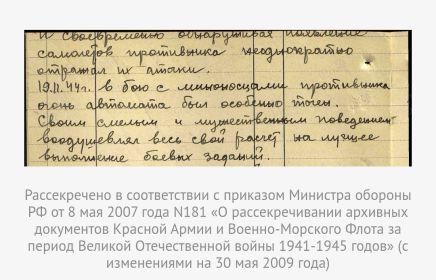 и своевременно обнаруживая появление
самолетов противника неоднократно
отражал их атаки.
19.II.44г. в бою с миноносцами противника
огонь автомата был особенно точен.
Своим смелым и мужественным поведением
воодушевлял весь свой расчет на лучшее
выполнение боевых заданий.
Рассекречено в соответствии с приказом Министра обороны
РФ от 8 мая 2007 года N181 «О рассекречивании архивных
документов Красной Армии и Военно-Морского Флота за
период Великой Отечественной войны 1941-1945 годов» (с
изменениями на 30 мая 2009 года)